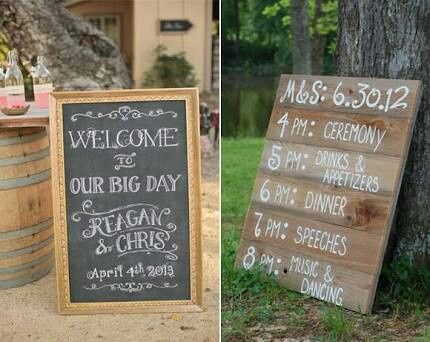 WELCOME
TO
OUR BIG DAY
REAGAN
& CHRIS
April 4th, 2013
M&S: 6.30.12
4 PM: CEREMONY
5 PM: DRINKS &
APPETIZERS
6 PM: DINNER
7 PM: SPEECHES
8 PM: MUSIC &
DANCING